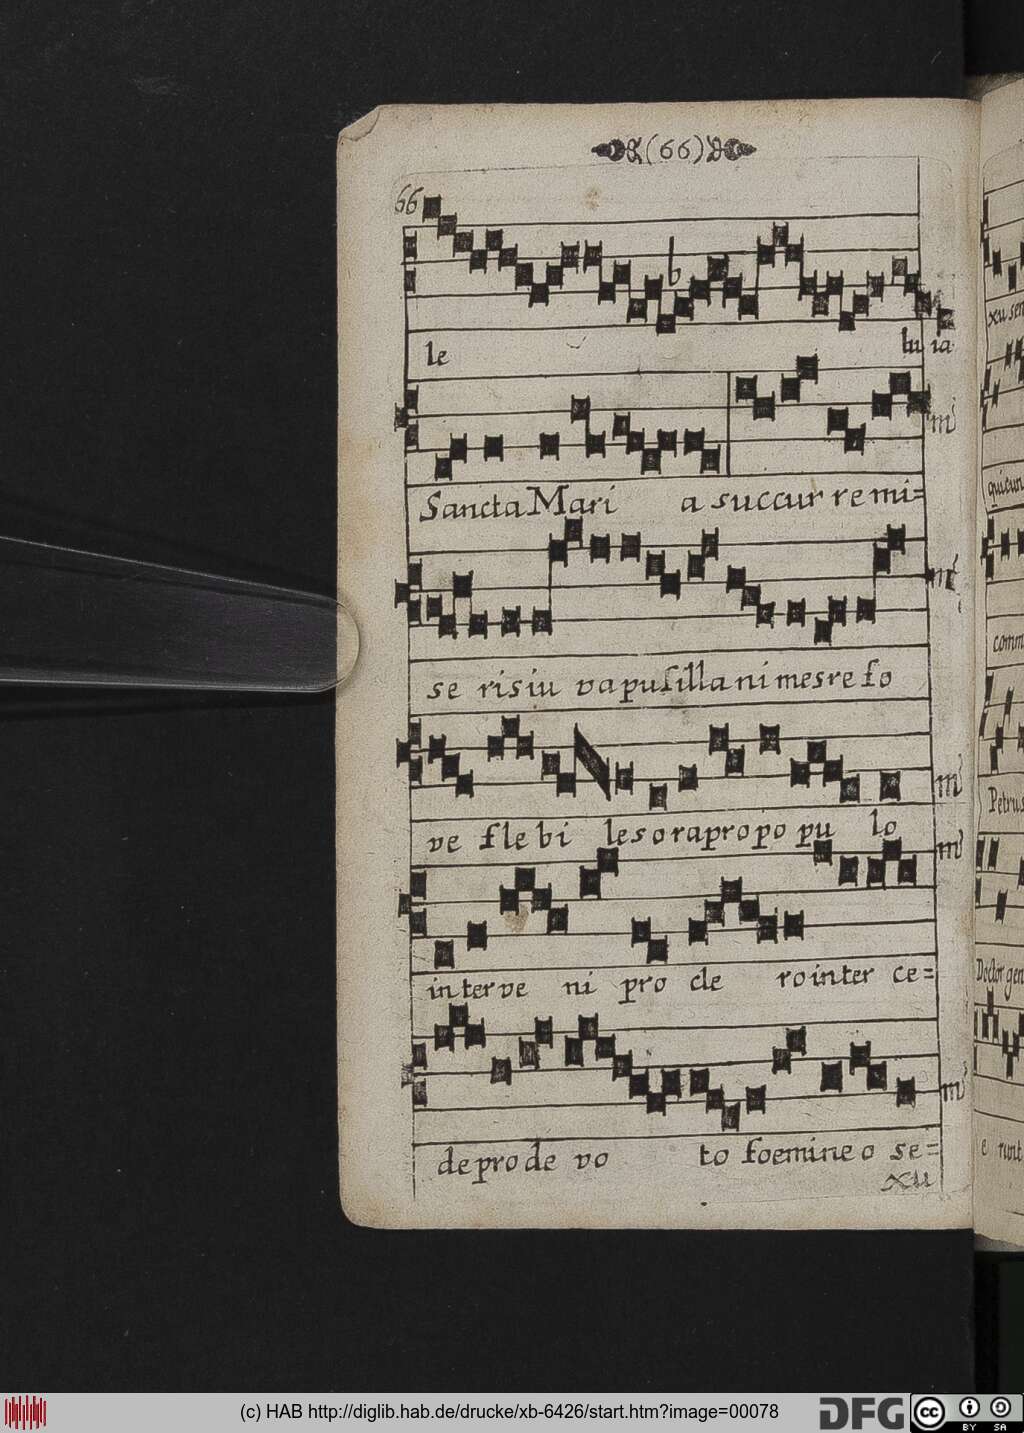 (66)
66
le lu ia
Sancta Mari a succur re mi=
se ris iu va pusilla ni mes re fo
ve fle bi les ora pro po pu lo
in ter ve ni pro cle ro inter ce=
de pro de vo to foemine o se=
xu
xu sen
quicun
comm
Petrus
Doctor gen
e runt
(c) HAB http://diglib.hab.de/drucke/xb-6426/start.htm?image=00078
DFG
cc BY SA